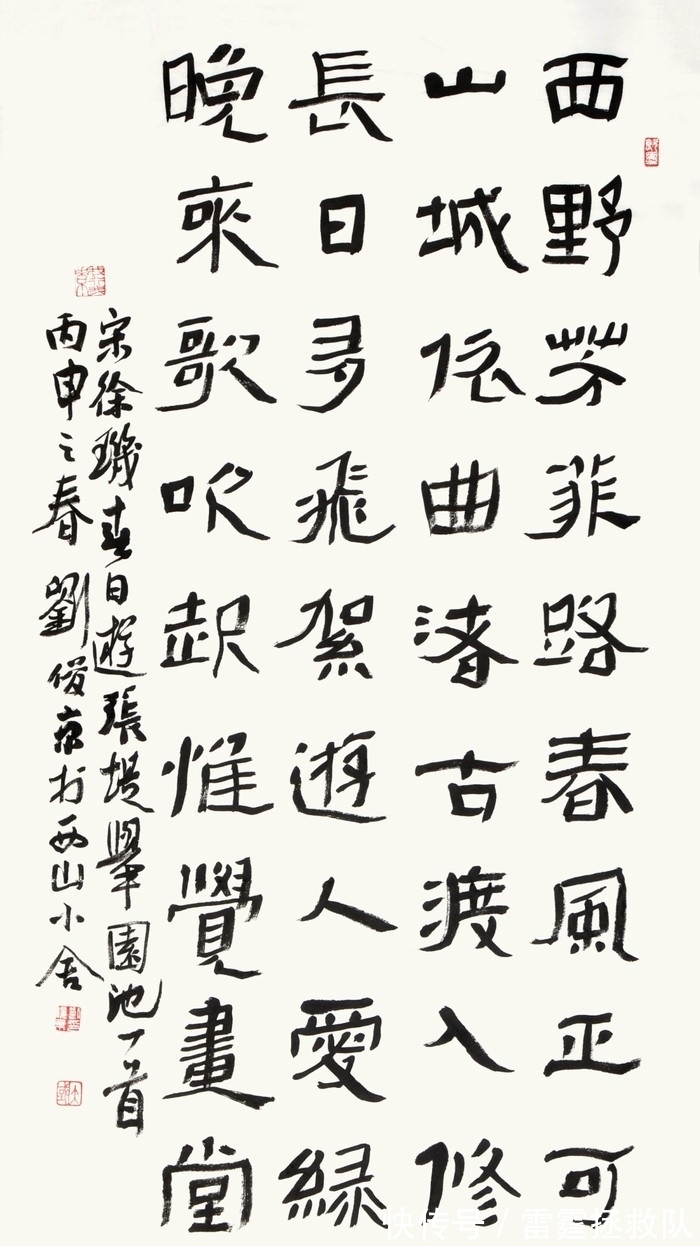 西野芳菲路春風正可
山城依曲渚古渡入修
長日多飛絮遊人愛綠
晚來歌吹起惟覺畫堂
宋徐璣春日遊張提舉園池一首
丙申之春劉俊京於西山小舍
快传号 / 雷霆拯救队